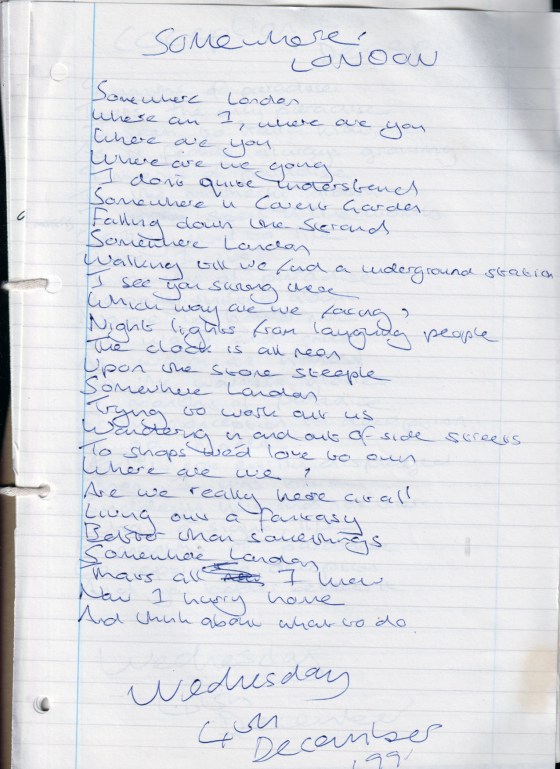 Somewhere,
LONDON
Somewhere London
Where am I, where are you
Where are you
Where are we going
I don't quite understand
Somewhere in Covent Garden
Falling down the Strand
Somewhere London
Walking till we find a underground station
I see you there
Which way are we facing?
Night lights from laughing people
The clock is all neon
Upon the stone steeple
Somewhere London
Trying to work out us
Wandering in and out of side streets
To shops we'd love to own
Where are we?
Are we really here at all
Living out a fantasy
Better than somethings
Somewhere London
Thats all I knew
Now I hurry home
And think about what to do
Wednesday
4th
December
'99